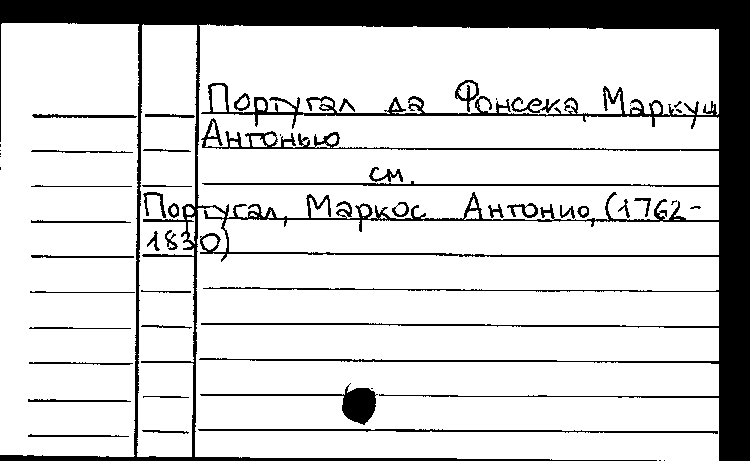 Португал да Фонсека, Маркуш
Антонью
см.
Португал, Маркос Антонио, (1762-
1830)